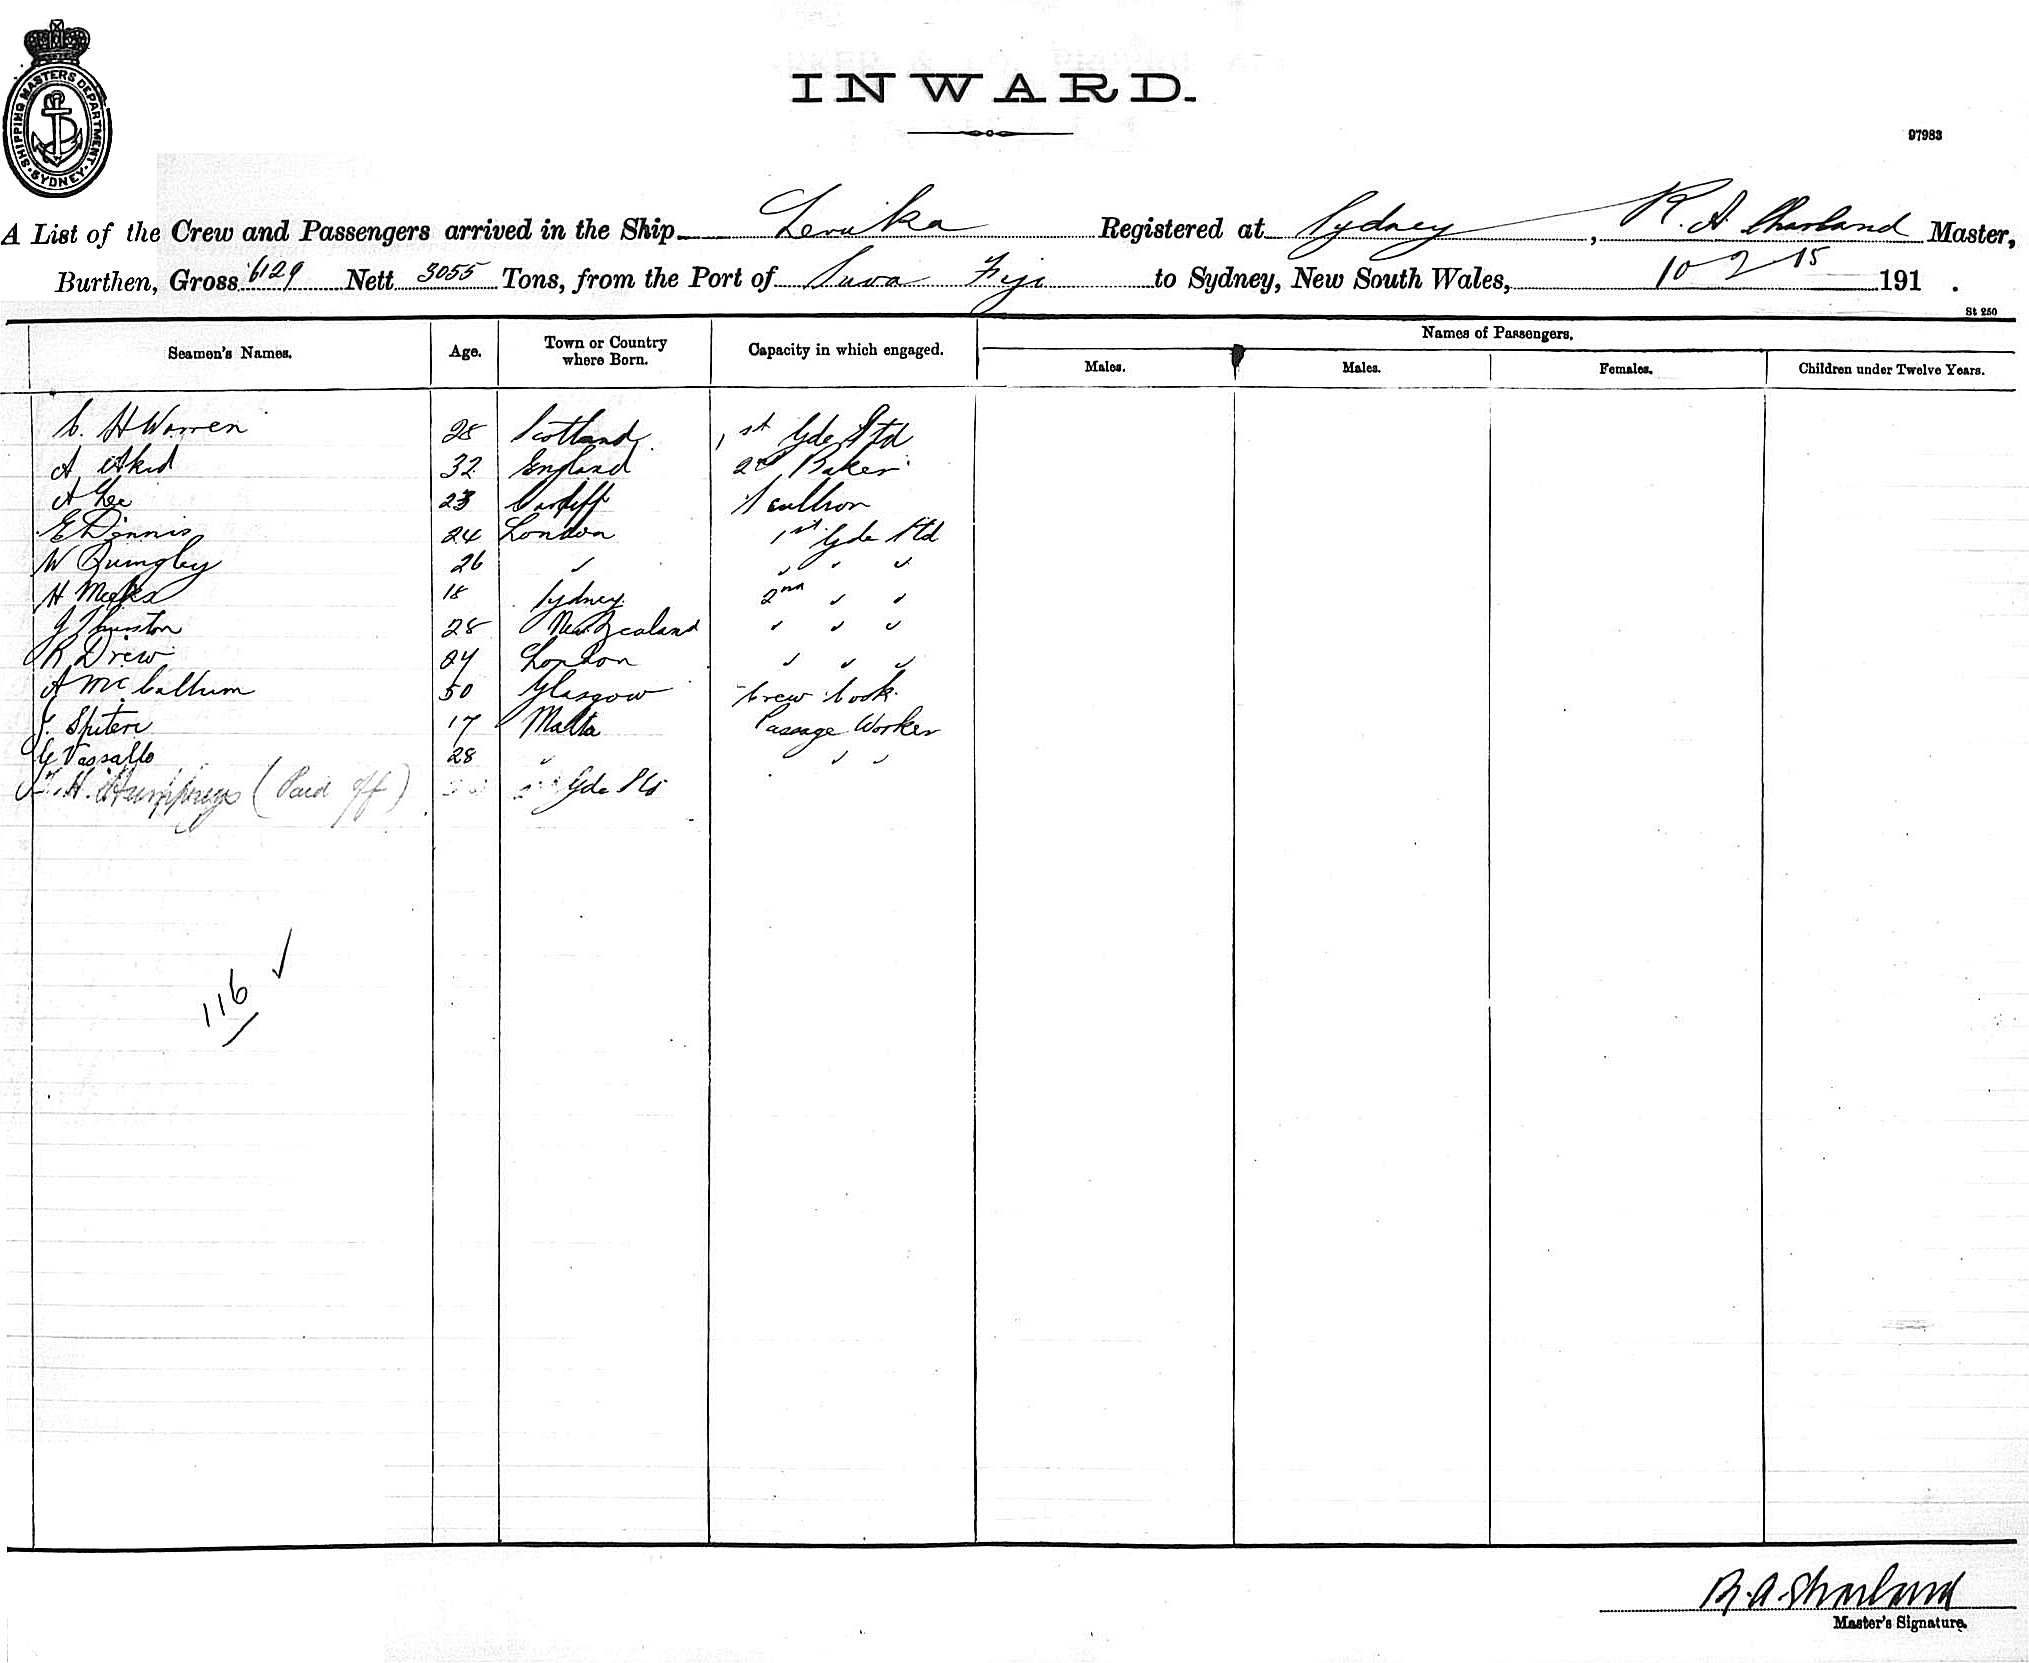 SHIPPING MASTERS DEPARTMENT SYDNEY
INWARD.
97983
A List of the Crew and Passengers arrived in the Ship Levuka Registered at Sydney, R. A. Sharland Master,
Burthen, Gross 6129 Nett 3055 Tons, from the Port of Suva Fiji to Sydney, New South Wales, 10 2 15 191 .
St 250
Seamen's Names. Age. Town or Country where Born. Capacity in which engaged. Names of Passengers.
Males. Males. Females. Children under Twelve Years.
C. H Warren 28 Scotland 1st Gde Std
A Akid 32 England 2nd Baker
A Lee 23 Cardiff Scullion
E Dennis 24 London 1st Gde Std
W Quingley 26 " " " "
H Meeks 18 Sydney 2nd " "
J Thurston 28 New Zealand " " "
R Drew 24 London " " "
A McCallum 50 Glasgow Crew Cook
J. Spiteri 17 Malta Passage Worker
G Vassallo 28 " " "
H. Humphreys (Paid off) Gde Std
116 ✓
R. A. Sharland
Master's Signature.